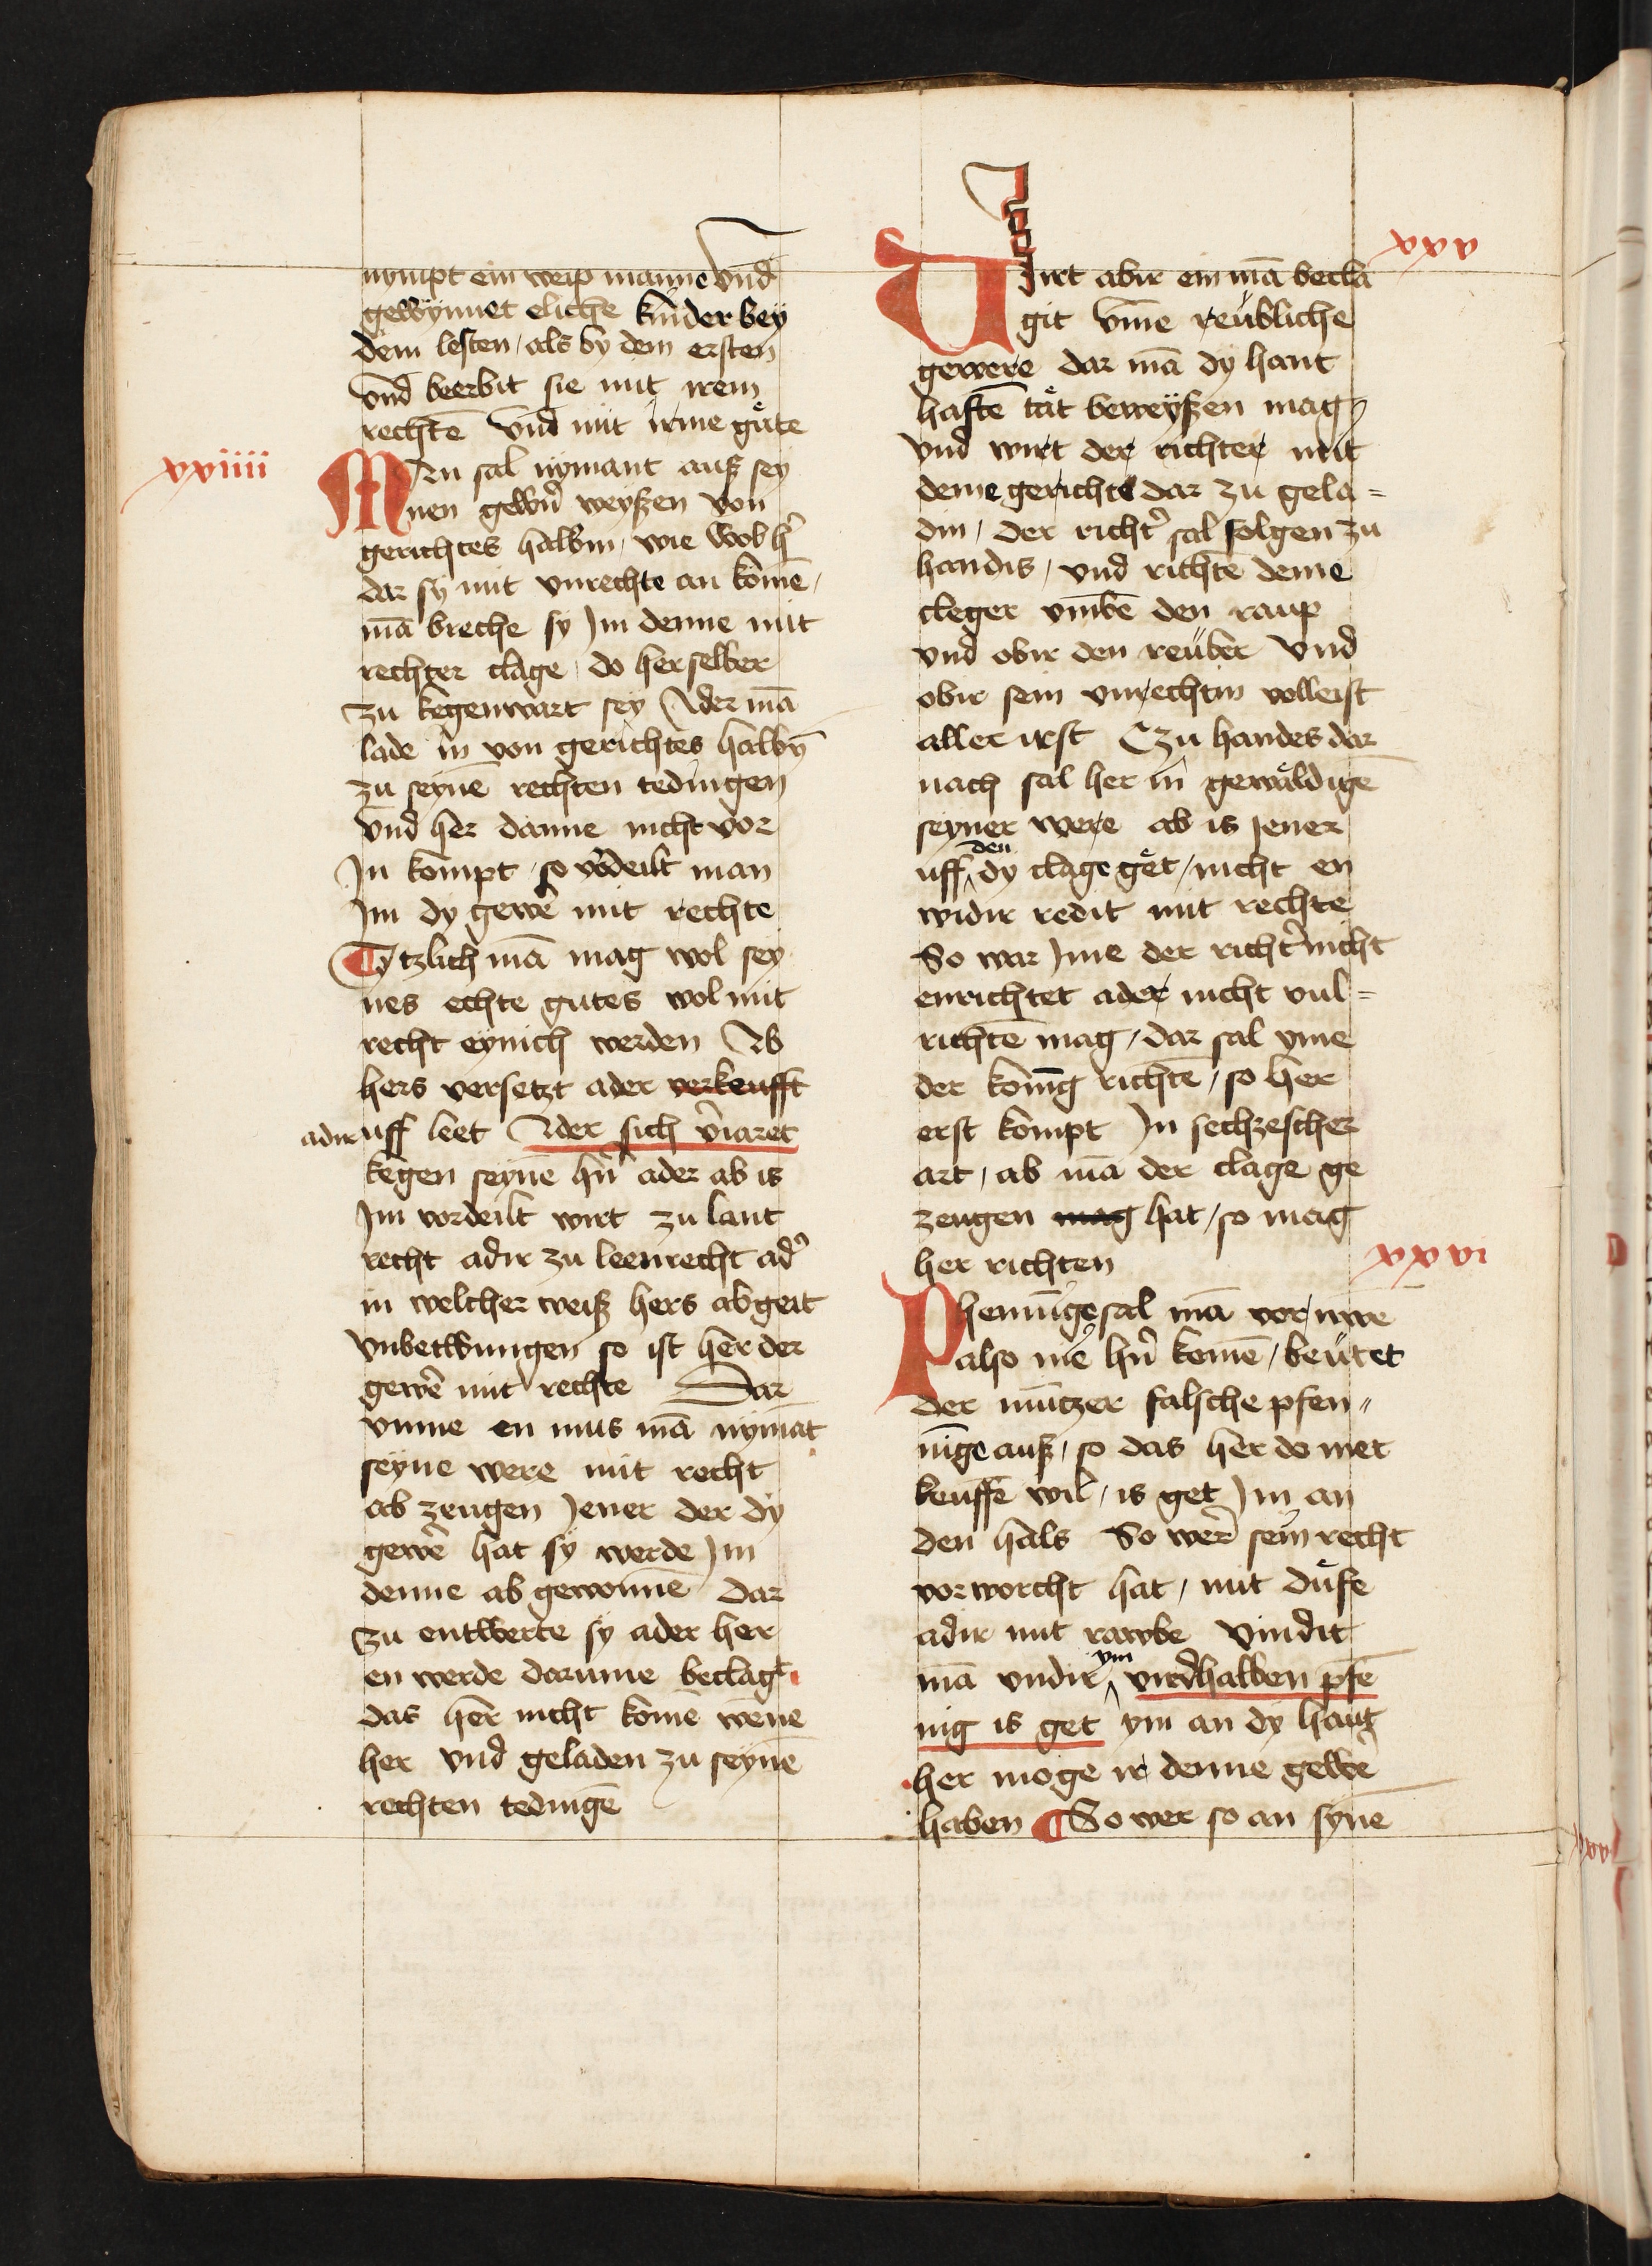 nympt ein weip manne vnd
gewynnet eliche kinder bey
dem lesten / als by dem ersten
vnd beerbit sie mit irem
rechtē vnd mit irme gute
xxiiii
Mẽ sal nymant auß sey
nen gewer̉ weyßen von
gerichtes halbin / wie wol h̉
dar sy mit vnrechte an komē /
mā breche sy Jm denne mit
rechter clage / do her selber
zu kegenwart sey Ader mā
lade in von gerichtes halbẏ
zu seynē rechten tedingen
vnd her danne nicht vor
Jn kompt / so vordeilt man
Jm dy gewer̉ mit rechte
Itzlich mā mag wol sey
nes echte gutes wol mit
recht eynich werden Ab
hers versetzt ader verkeufft
adir uff leet Ader sich v̉iaret
kegen seynē h̉n ader ab is
Jm vordeilt wirt zu lant
recht adir zu leenrecht ad̉
in welcher weiß hers abgeit
vnbetwungen so ist her der
gewer̉ mit rechte Dar
vmme en mus mā nymāt
seyne were mit recht
ab zeugen Jener der dy
gewer̉ hat sy werde Jm
denne ab gewonnē Dar
zu entwerte sy ader her
en werde darume beclagt
das her nicht kome wēne
her vnd geladen zu seynē
rechten tedingē
xxv
Wirt abir ein mā becla
git vm̄e reübliche
gewere dar mā dy hant
haftē tat beweyßen mag
vnd wirt der richter mit
deme gerichte dar zu gela=
din / der richt̉ sal folgen zu
handis / vnd richtē deme
cleger vmbē den raup
vnd obir den reüber vnd
obir sein vnrechtin volleist
aller irst Czu handes dar
nach sal her in gewaldigē
seyner were ab is Jener
uff den dy clage get / nicht en
widir redit mit rechte
So war Jme der richt̉ nicht
enrichtet ader nicht vul=
richtē mag / dar sal yme
der konīg richtē / so her
erst kompt Jn sechzescher
art / ab mā der clage ge
zeugen mag hat / so mag
her richten
xxvi
Phennīge sal mā vornuwē
also nuẽ h̉n komē / beütet
der müntzer falsche pfen=
nīge auß / so das her do met
keuffē wil / is get Jm an
den hals So wer̉ sein recht
vorworcht hat / mit dufe
adir mit rawbe Vindit
mā vndir ym vird̉halben pfē
nig is get ym an dy haut
her moge ir denne gewe
haben ¶ So wer so an synē